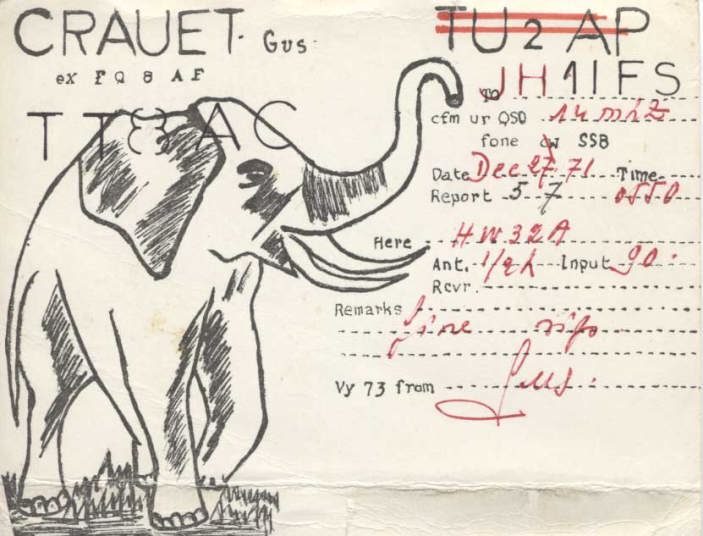 CRAUET. Gus
ex FQ8AF
TT8AC
TU2AP
TO JH1IFS
cfm ur QSO 14 mhz
fone cw SSB
Date Dec 27, 71 Time 0550
Report 5 7
Here HW32A
Ant. 1/2 λ Input 90
Rcvr.
Remarks fine sigs
Vy 73 from Gus.